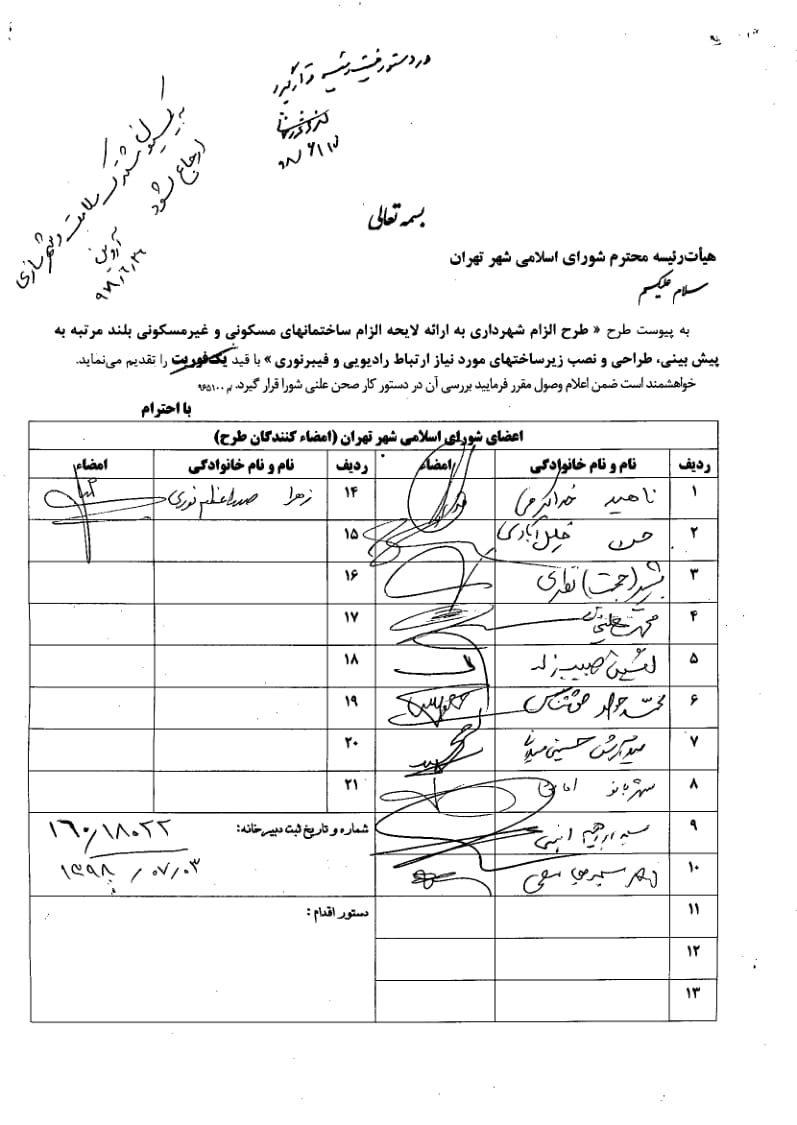 در دستور
۹۸/۶/۱۷
به کمیسیون
سلامت و شهرسازی
ارجاع شود
۹۸/۶/۲۶
بسمه تعالی
هیأت‌رئیسه محترم شورای اسلامی شهر تهران
سلام علیکم
به پیوست طرح « طرح الزام شهرداری به ارائه لایحه الزام ساختمانهای مسکونی و غیرمسکونی بلند مرتبه به
پیش بینی، طراحی و نصب زیرساختهای مورد نیاز ارتباط رادیویی و فیبرنوری » با قید یک‌فوریت را تقدیم می‌نماید.
خواهشمند است ضمن اعلام وصول مقرر فرمایید بررسی آن در دستور کار صحن علنی شورا قرار گیرد. /م ۹۶۵۱۰۰
با احترام
اعضای شورای اسلامی شهر تهران (امضاء کنندگان طرح)
ردیف نام و نام خانوادگی امضاء ردیف نام و نام خانوادگی امضاء
۱ ناهید خداکرمی ۱۴ زهرا صدراعظم نوری
۲ حسن خلیل آبادی ۱۵
۳ بشیر (حجت) نظری ۱۶
۴ ۱۷
۵ افشین حبیب زاده ۱۸
۶ محمد جواد حق شناس ۱۹
۷ سید آرش حسینی میلانی ۲۰
۸ شهربانو امانی ۲۱
۹ سید ابراهیم امینی شماره و تاریخ ثبت دبیرخانه: ۱۶۰/۱۸۰۲۲
۱۰ ۱۳۹۸/۰۷/۰۳
۱۱ دستور اقدام :
۱۲
۱۳